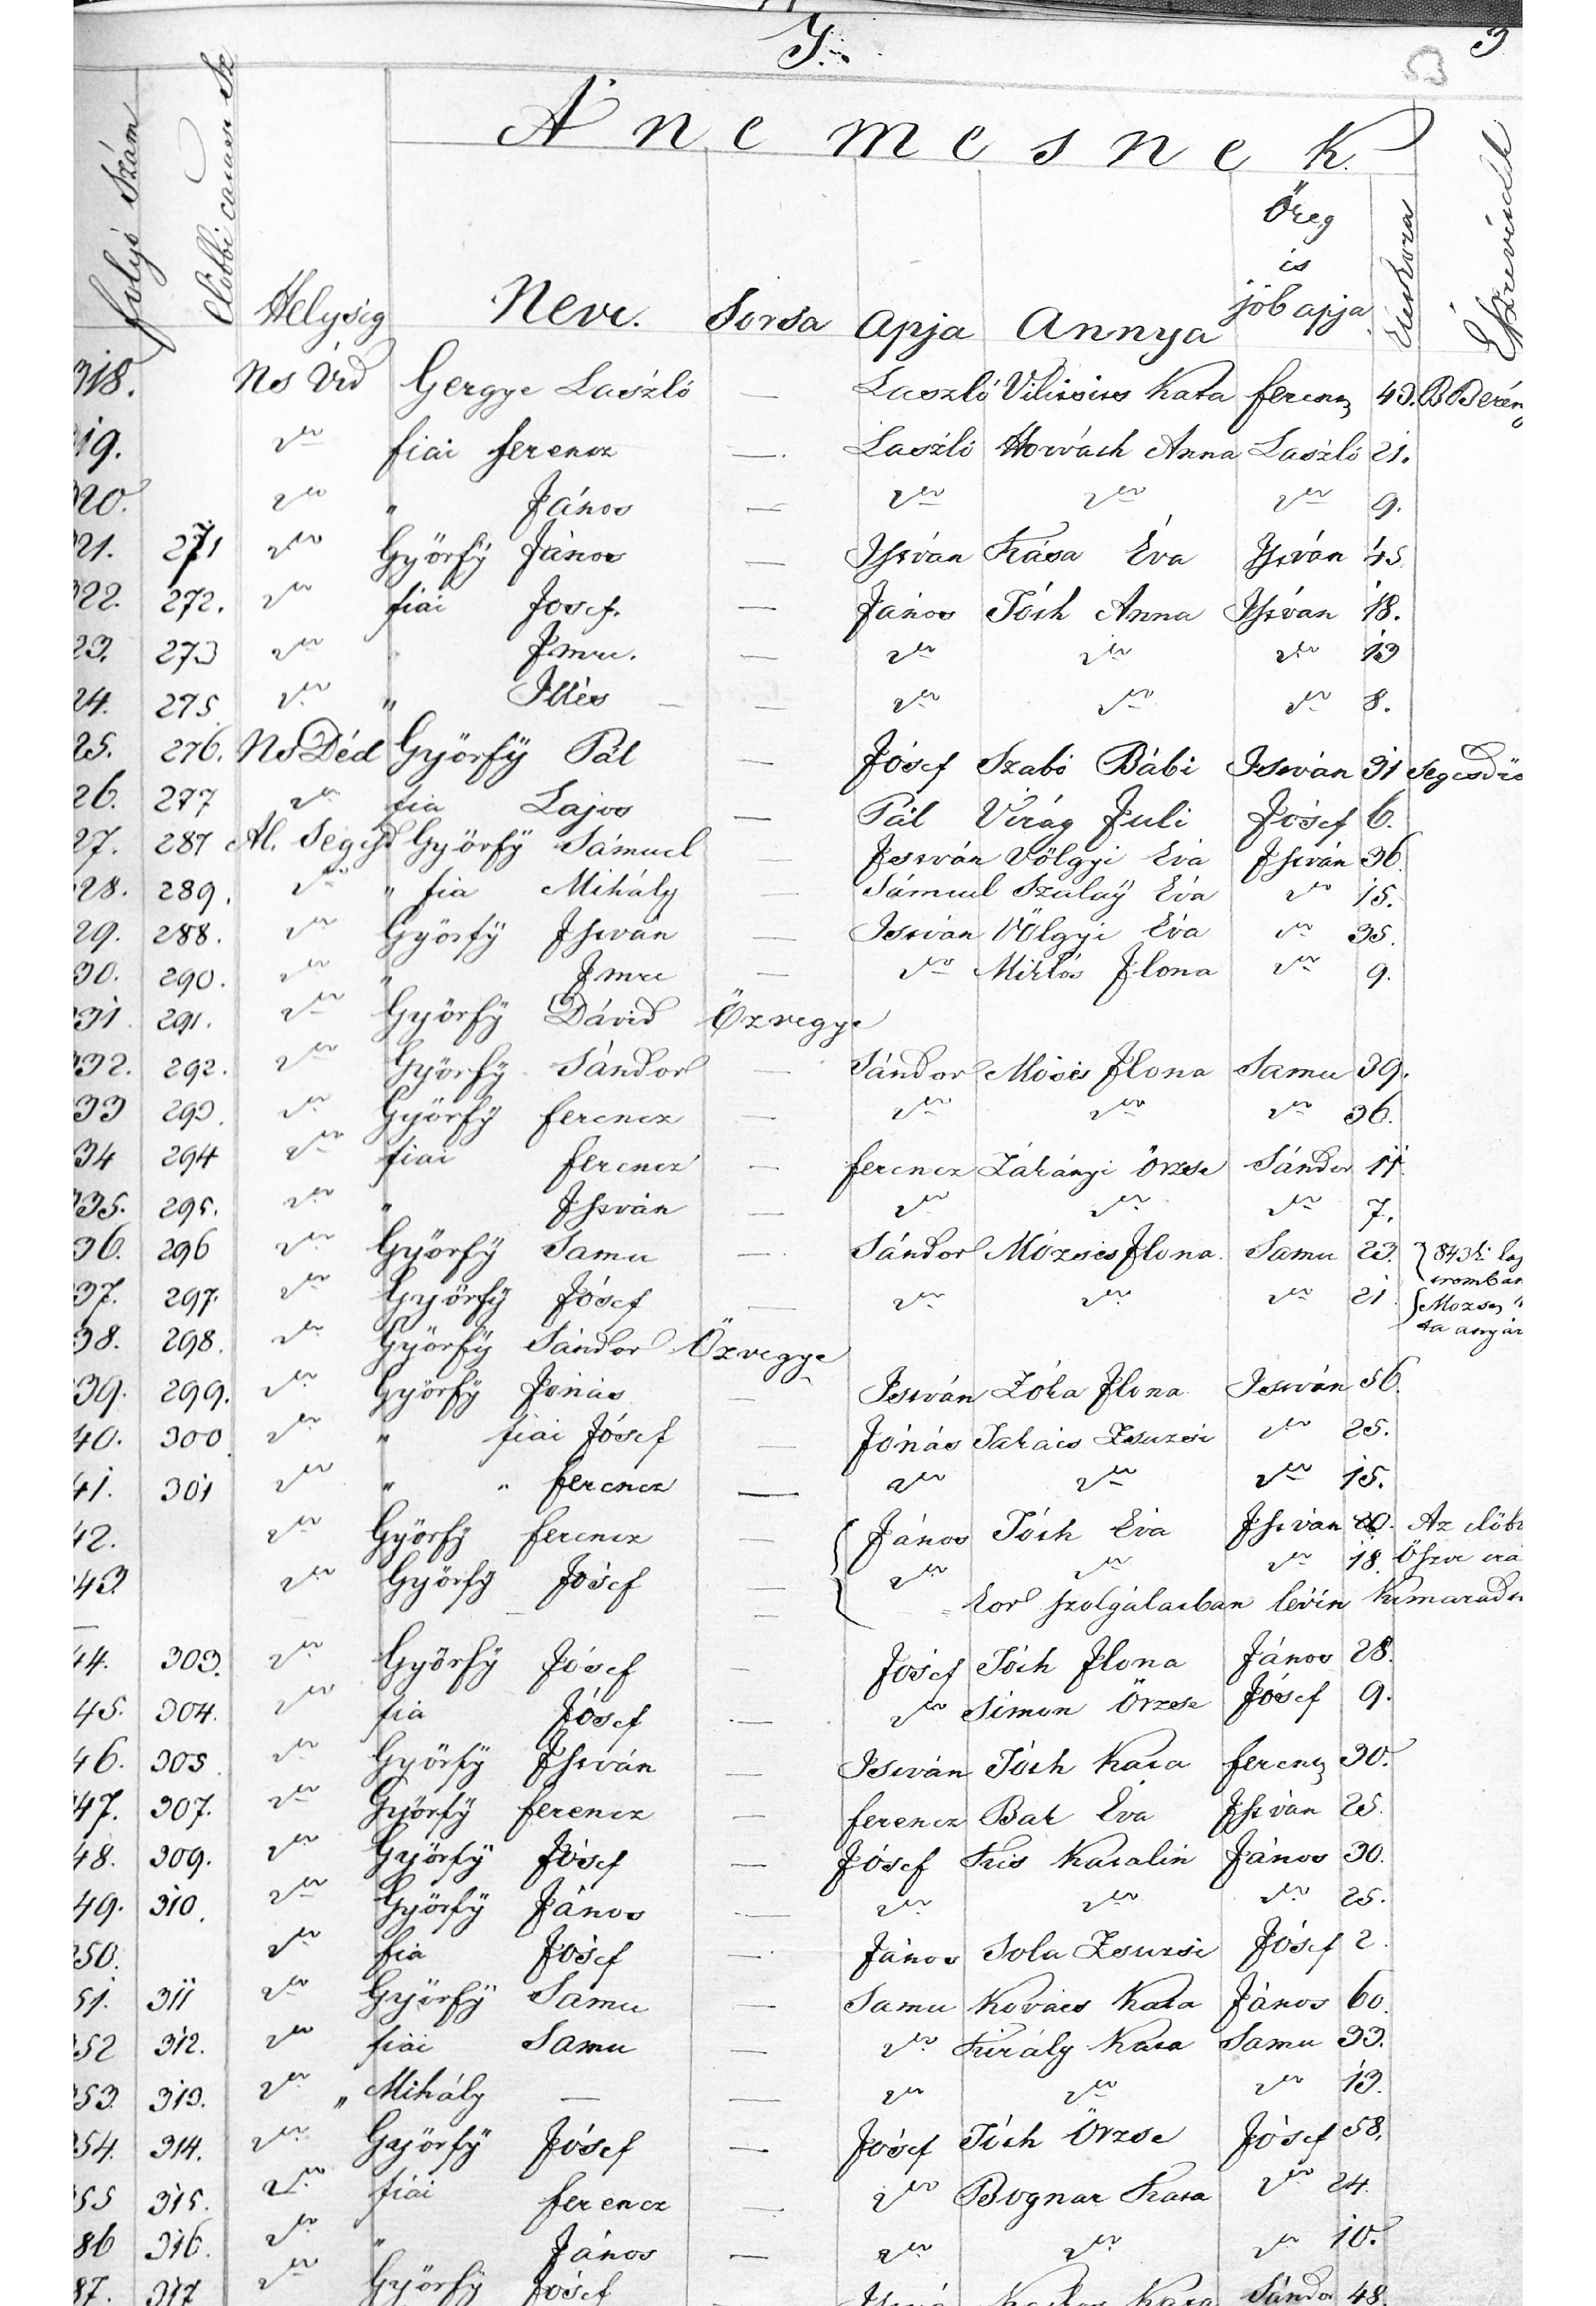 3
A n e m e s n e k
folyó Szám Előbbi Helység Neve. Sorsa Apja Annya Öreg is job apja Életkora Észrevételek
318. Ns Vid Gergye László — László Kata Ferencz 43. B Berén
19. " fiai Ferencz — László Horváth Anna László 21.
20. " " János — " " " 9.
21. 271 " Györfÿ János — István Kása Éva István 45
322. 272. " fiai Josef. — János Tóth Anna István 18.
23. 273 " Imre. — " " " 13
24. 275 " " Illés — " " " 8.
25. 276. Ns Déd Györfÿ Pál — Jósef Szabó Bábi István 31 Segesdrő
26. 277 " fia Lajos — Pál Virág Juli Jósef 6.
27. 287 Al. Segesd Györfÿ Sámuel — István Völgyi Éva István 36
328. 289. " " fia Mihály — Sámuel Szalaÿ Éva " 15.
29. 288. " Györfÿ István — István Völgyi Éva " 35.
30. 290. " " Imre — " Miklós Ilona " 9.
331. 291. " Györfÿ Dávid Özvegye
332. 292. " Györfÿ Sándor — Sándor Mósis Ilona Samu 39.
33 293. " Györfÿ Ferencz — " " " 36.
34 294 " fiai Ferencz — Ferencz Zákányi Örzse Sándor 11.
335. 295. " " István — " " " 7.
36. 296 " Györfÿ Samu — Sándor Mózsis Ilona Samu 23. 843ki
37. 297. " Györfÿ Jósef — " " " 21
38. 298. " Györfÿ Sándor Özvegye
39. 299. " Györfÿ Jónás — István Zóka Ilona István 56.
40. 300 " " fiai Jósef — Jónás Takács Zsuzsi " 25.
41. 301 " " " Ferencz — " " " 15.
42. " Györfÿ Ferencz — János Tóth Éva István 20. Az előb
43. " Györfÿ Jósef — " " " 18.
szolgálatban lévén kimarad
44. 303. " Györfÿ Jósef — Jósef Tóth Ilona János 28.
45. 304. " fia Jósef — " Simon Örzse Jósef 9.
46. 305 " Györfÿ István — István Tóth Kata Ferencz 30.
47. 307. " Györfÿ Ferencz — Ferencz Bak Éva István 25.
48. 309. " Györfÿ Jósef — Jósef Kis Katalin János 30.
49. 310. " Györfÿ János — " " " 25.
350. " fia Jósef — János Sola Zsuzsi Jósef 2.
51. 311 " Györfÿ Samu — Samu Kovács Kata János 60.
352 312. " fiai Samu — " Király Kata Samu 33.
353. 313. " " Mihály — — " " " 13.
354. 314. " Györfÿ Jósef — Jósef Tóth Örzse Jósef 58.
355 315. " fiai Ferencz — " Bognar Kata " 24.
86 316. " " János — " " " 10.
87. 317 " Györfÿ Jósef Kata Sándor 48.